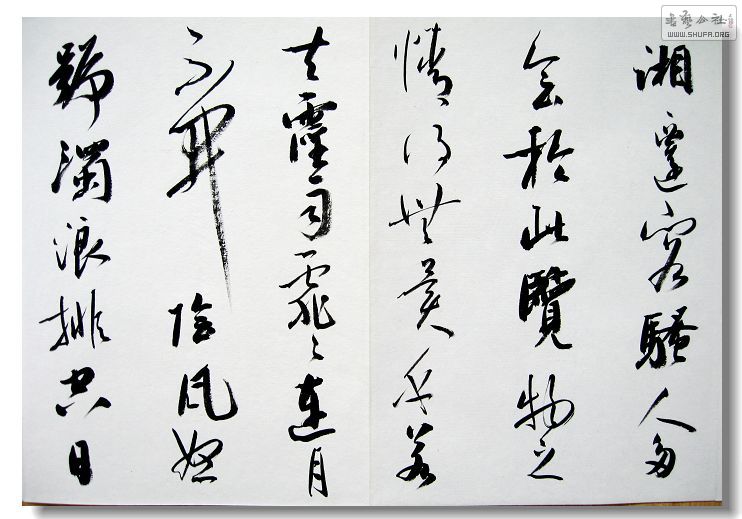 湘遷客騷人多
会於此覽物之
情得無異乎若
夫霪雨霏々連月
不開陰風怒
號濁浪排空日
书艺公社
WWW.SHUFA.ORG